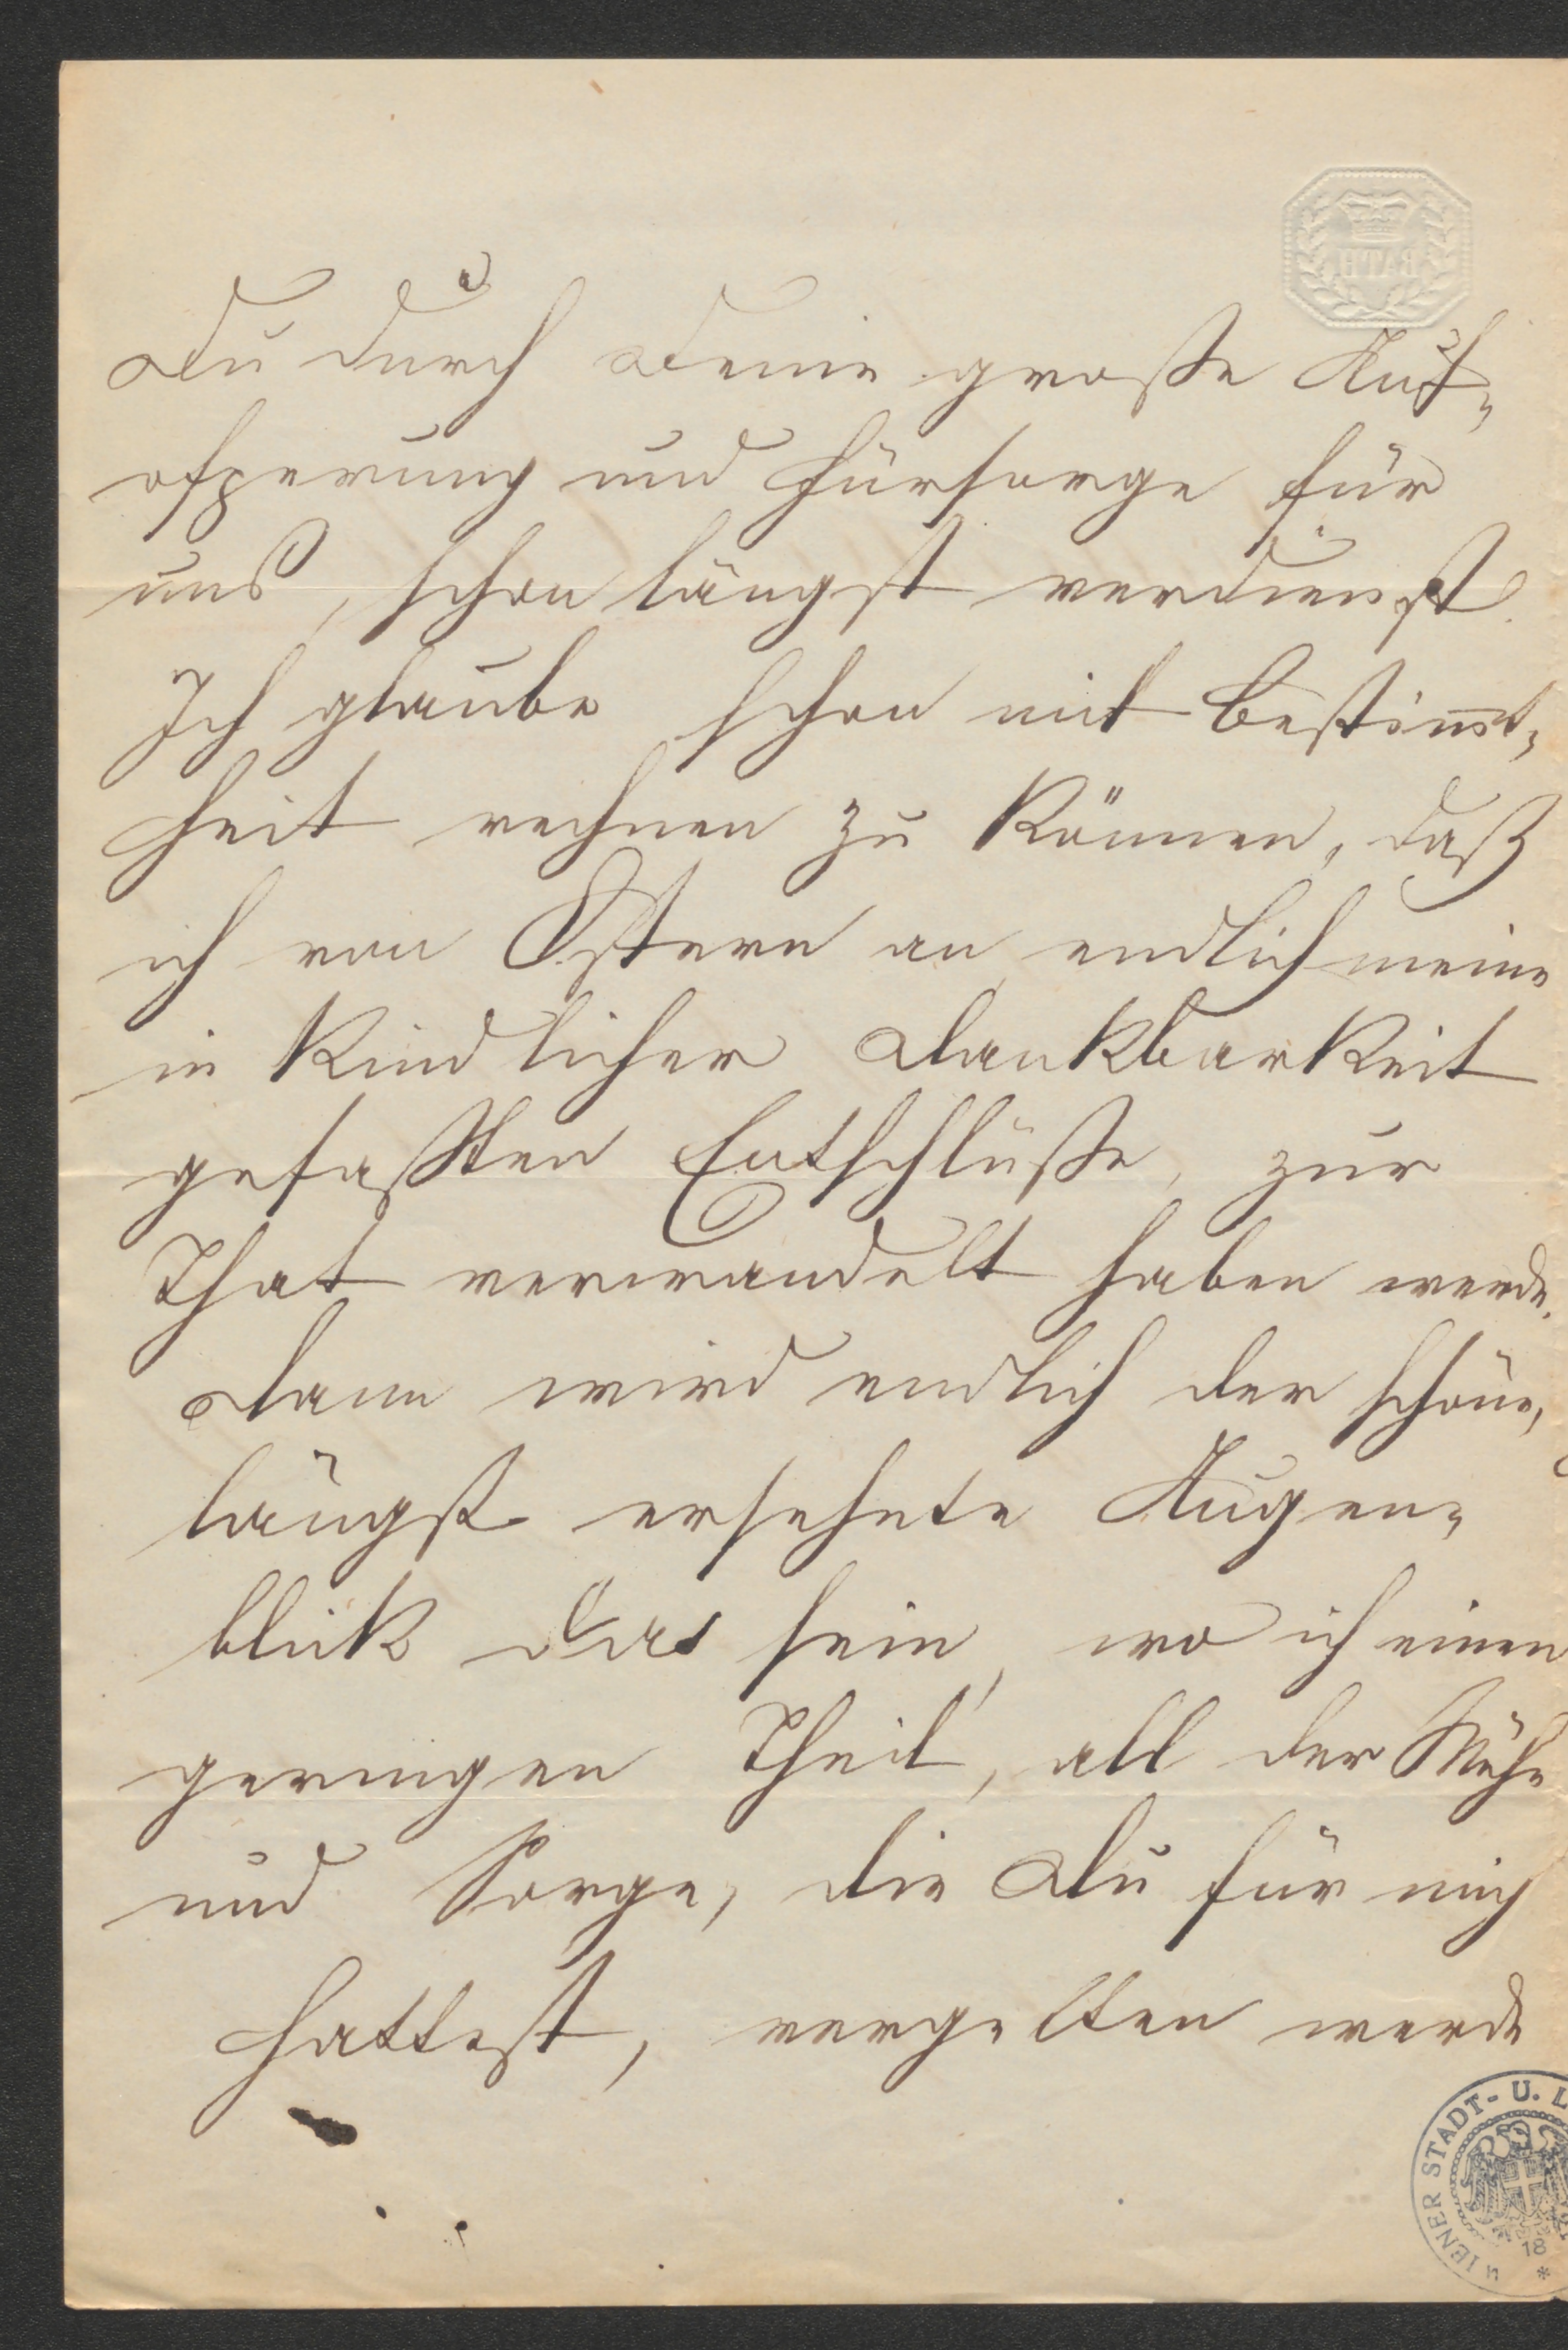 BATH
Du durch Deine große Auf-
opferung und Fürsorge für
uns, schon längst verdienst.
Ich glaube schon mit Bestimt-
heit rechnen zu können, daß
ich von Ostern an endlich meine
in kindlicher Dankbarkeit
gefaßten Entschlüße, zur
That verwandelt haben werde.
Dann wird endlich der schöne,
längst ersehnte Augen-
blick da sein, wo ich einen
geringen Theil, all der Mühe
und Sorge, die Du für mich
hattest, vergelten werde
WIENER STADT- U. L
18